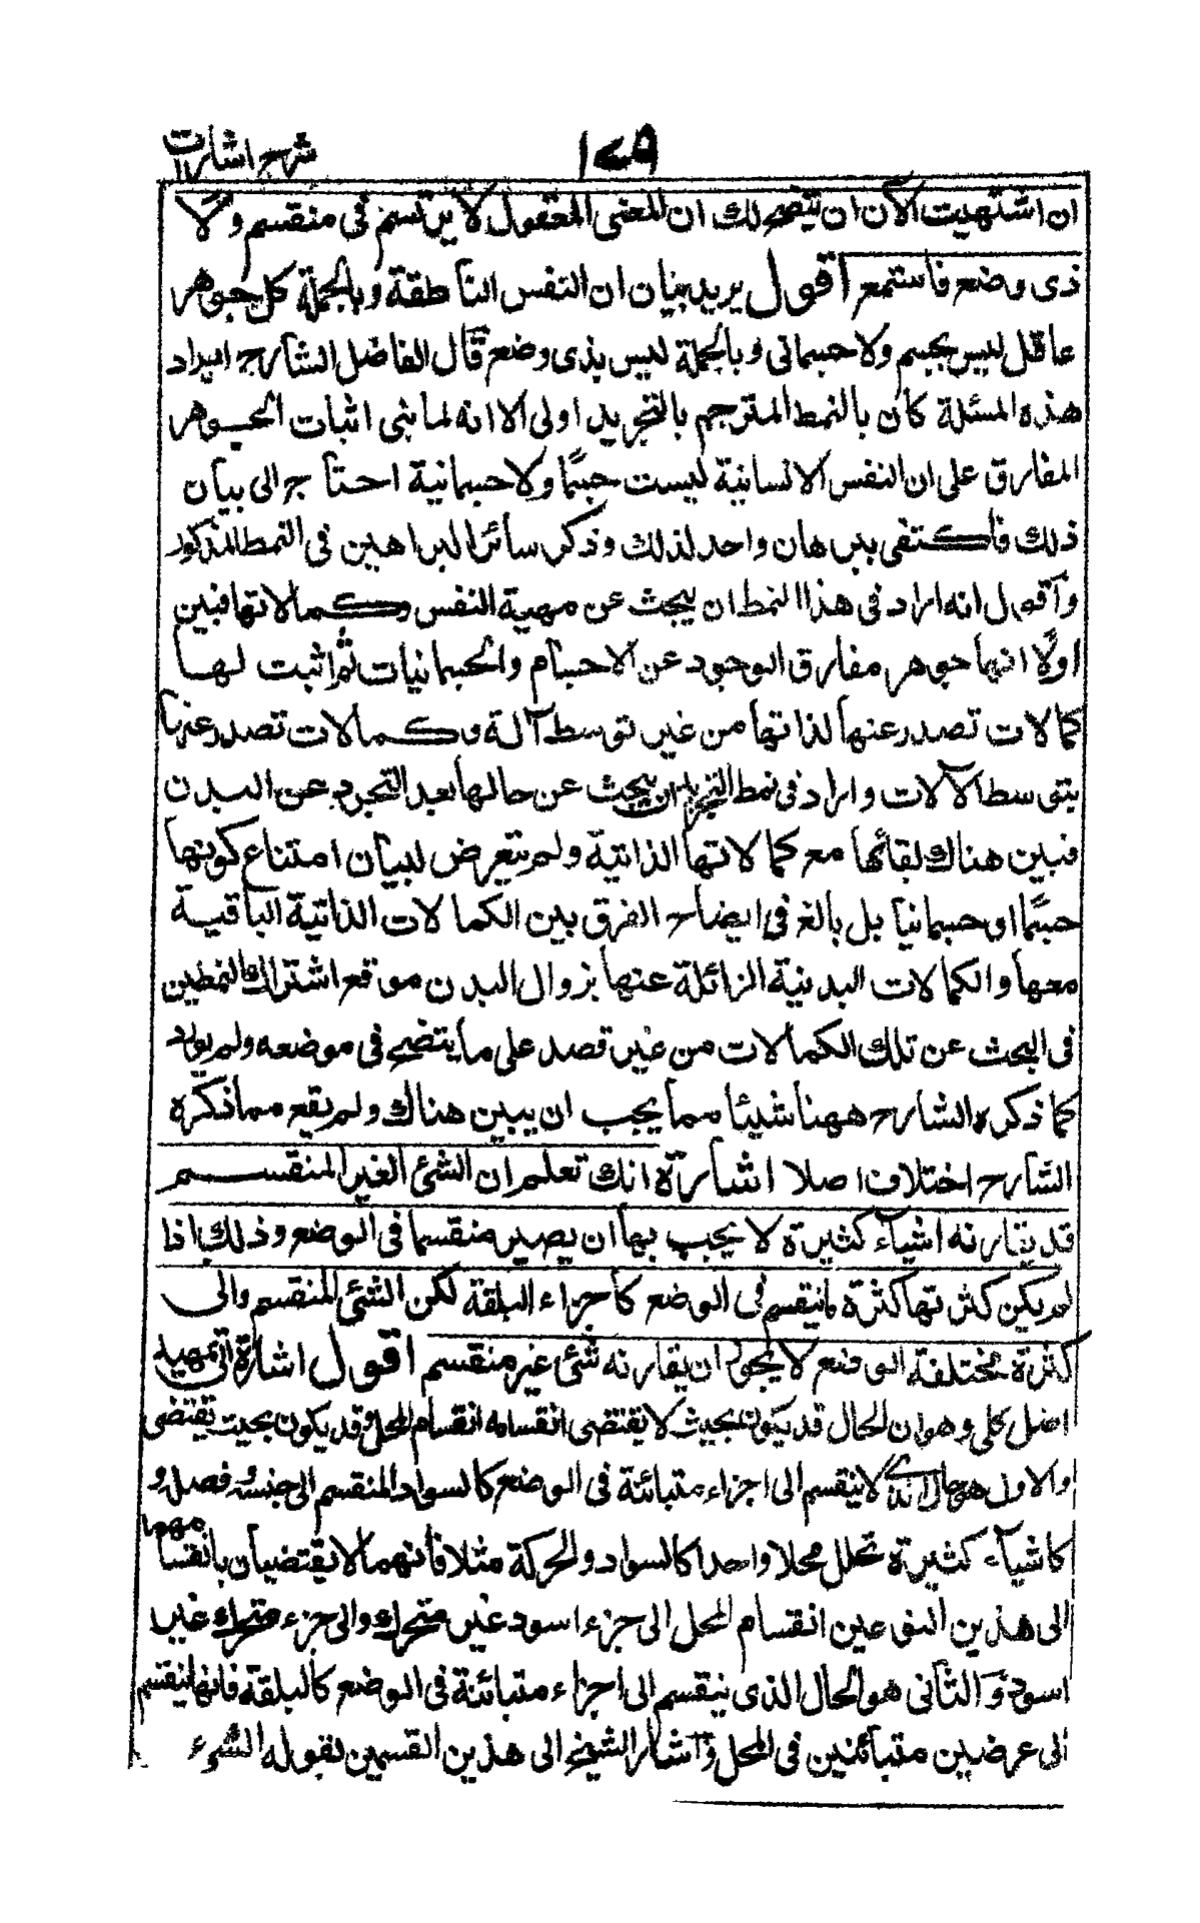 شرح اشارات ١٧٩
ان اشتهيت الآن ان يتضح لك ان المعنى المعقول لا يرتسم فى منقسم ولا
ذى وضع فاستمع اقول يريد بيان ان النفس الناطقة وبالجملة كل جوهر
عاقل ليس بجسم ولا جسمانى وبالجملة ليس بذى وضع قال الفاضل الشارح ايراد
هذه المسئلة كان بالنمط المترجم بالتجريد اولى الا انه لما بنى اثبات الجوهر
المفارق على ان النفس الانسانية ليست جسمًا ولا جسمانية احتاج الى بيان
ذلك فاكتفى ببرهان واحد لذلك وذكر سائر البراهين فى النمط المذكور
وآقول انه اراد فى هذا النمط ان يبحث عن مهية النفس وكمالاتها فبين
اولًا انها جوهر مفارق الوجود عن الاجسام والجسمانيات ثم اثبت لها
كمالات تصدر عنها لذاتها من غير توسط آلة وكمالات تصدر عنها
بتوسط الآلات واراد فى نمط التجريد ان يبحث عن حالها بعد التجرد عن البدن
فبين هناك بقائها مع كمالاتها الذاتية ولم يتعرض لبيان امتناع كونها
جسمًا او جسمانيا بل بالغ فى ايضاح الفرق بين الكمالات الذاتية الباقية
معها والكمالات البدنية الزائلة عنها بزوال البدن موقع اشتراك النمطين
فى البحث عن تلك الكمالات من غير قصد على ما يتضح فى موضعه ولم يورد
كما ذكره الشارح ههنا شيئا مما يجب ان يبين هناك ولم يقع مما ذكره
الشارح اختلاف اصلا اشارة انك تعلم ان الشئ الغير المنقسم
قد يقارنه اشياء كثيرة لا يجب بها ان يصير منقسما فى الوضع وذلك اذا
لم يكن كثرتها كثرة ما ينقسم فى الوضع كأجزاء البلقة لكن الشئ المنقسم والى
كثرة مختلفة الوضع لا يجوز ان يقارنه شئ غير منقسم اقول اشارة الى تمهيد
اصل كلى وهو ان الحال قد يكون بحيث لا يقتضى انقسامه انقسام المحل وقد يكون بحيث يقتضى
والاول هو حال الذى لا ينقسم الى اجزاء متبائنة فى الوضع كالسواد المنقسم الى جنسه وفصله و
كاشياء كثيرة تحل محلا واحدا كالسواد والحركة مثلا فأنهما لا يقتضيان بانقسامهما
الى هذين النوعين انقسام المحل الى جزء اسود غير متحرك والى جزء متحرك غير
اسود وَ الثانى هو الحال الذى ينقسم الى اجزاء متبائنة فى الوضع كالبلقة فانها تنقسم
الى عرضين متبائنين فى المحل وآشار الشيخ الى هذين القسمين بقوله الشئ